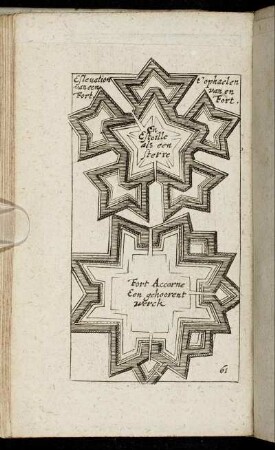 Eslevation
van een
Fort.
t'ophaelen
van en
Fort.
En
Estoille
als een
sterre
Fort Accorne
Een gehoorent
werck
61